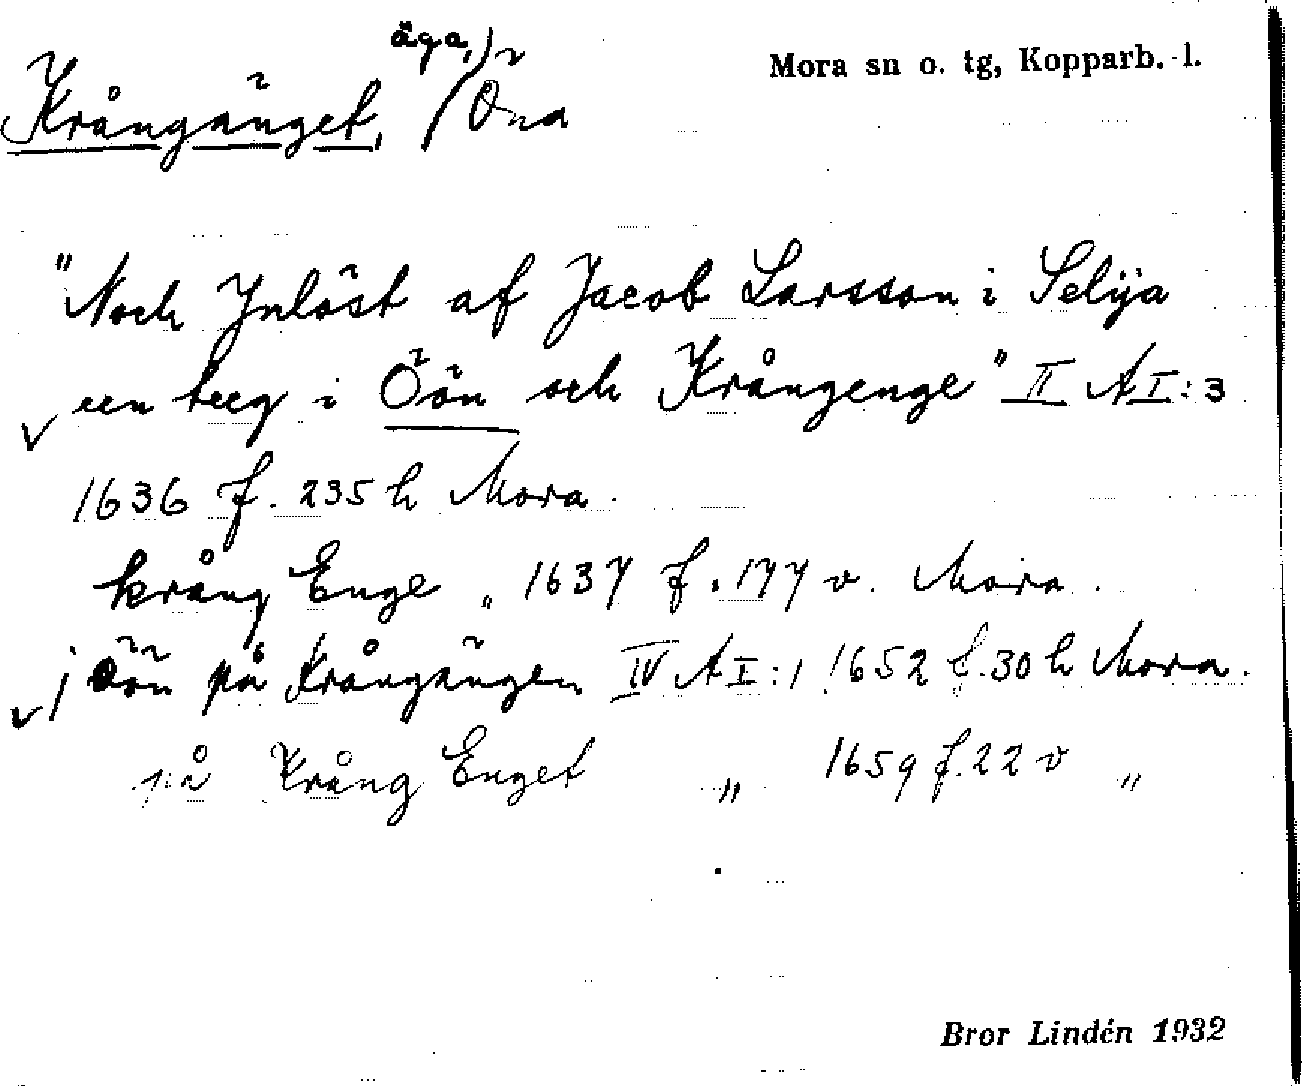 Krångänget, äga, / Öna
Mora sn o. tg, Kopparb. l.
"Noch Jnlöst af Jacob Larsson i Selija
een teeg i Öön och Krångenge" II A I:3
1636 f. 235 h Mora.
krång Enge „ 1637 f. 177 v. Mora.
j Öön på Krångängen IV A I:1 1652 f. 30 h Mora.
på Krång Enget „ 1659 f. 22 v „
Bror Lindén 1932